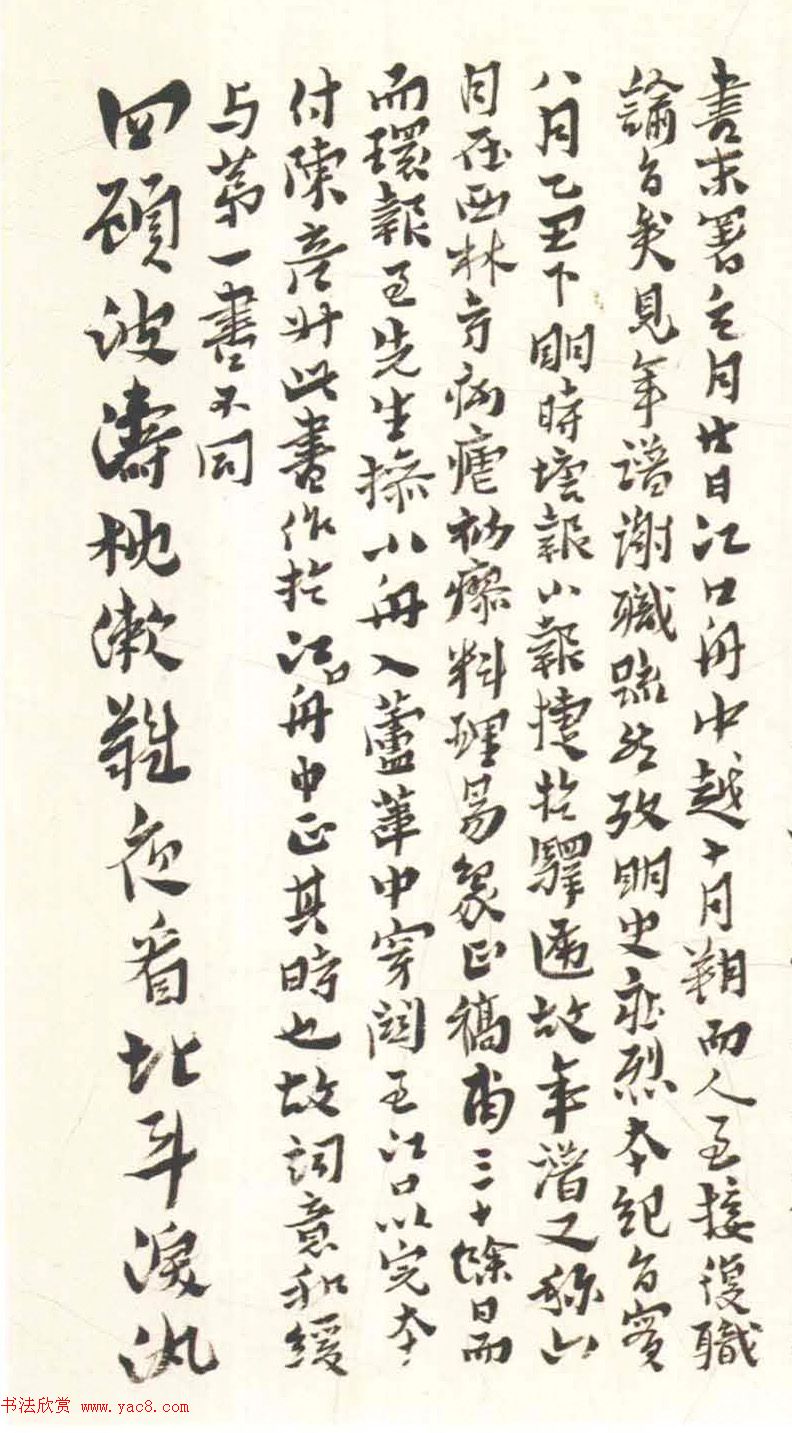 書末署七月廿日江口舟中越十月朔而人至接復職
諭旨矣見年譜謝職疏然攷明史莊烈本紀旨寔
八月乙丑下明時塘報小報捷於驛遞故年譜又称六
月在西林方病瘧初療料理易象正稿甫三十餘日而
而環報至先生操小舟入蘆葦中穿闼至江口以完本
付陳彦升此書作於江口舟中正其時也故詞意和緩
与苐一書不同
回頭波濤枕漱難夜看北斗淚汍
书法欣赏 www.yac8.com